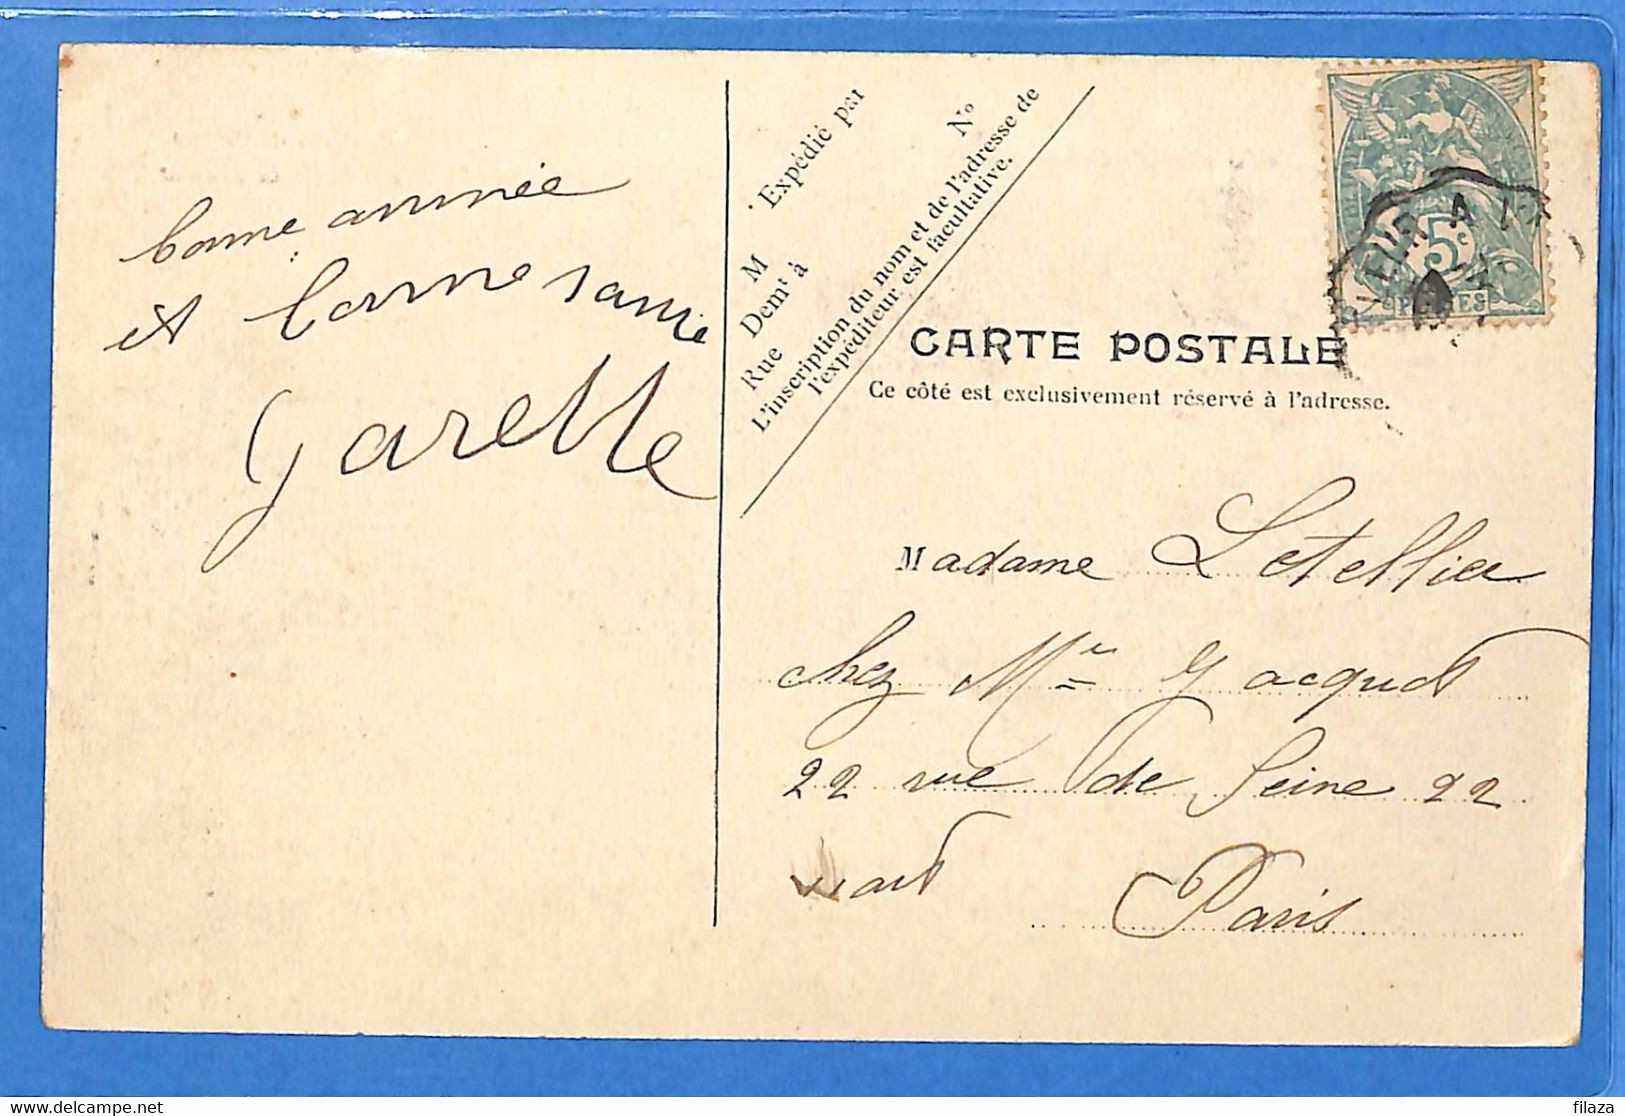 bonne année
et bonne santé
Garette
Expédié par
M
Demt à
Rue
No
L'inscription du nom et de l'adresse de
l'expéditeur est facultative.
5c
POSTES
CARTE POSTALE
Ce côté est exclusivement réservé à l'adresse.
Madame Letellier
chez Me Jacquet
22 rue de Seine 22
Paris
filaza